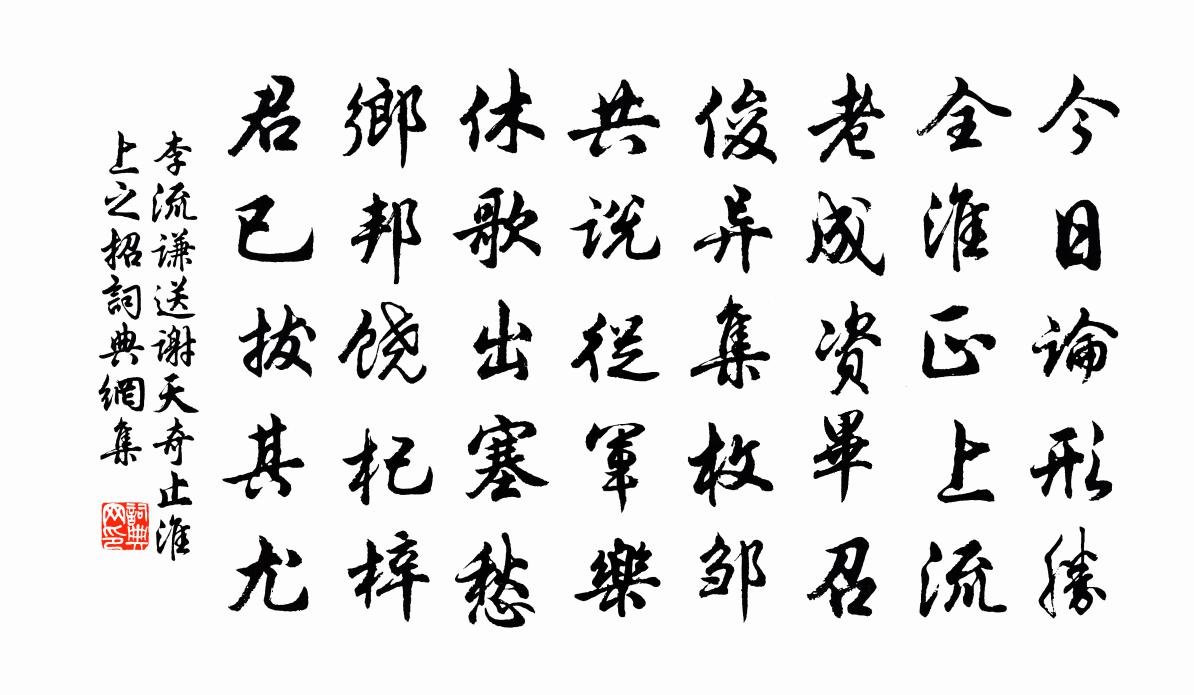 今日論形勝
全淮正上流
老成資畢召
俊异集枚邹
共说從軍樂
休歌出塞愁
鄉邦饶杞梓
君已拔其尤
李流谦送谢天奇止淮
上之招詞典網集
詞典网印